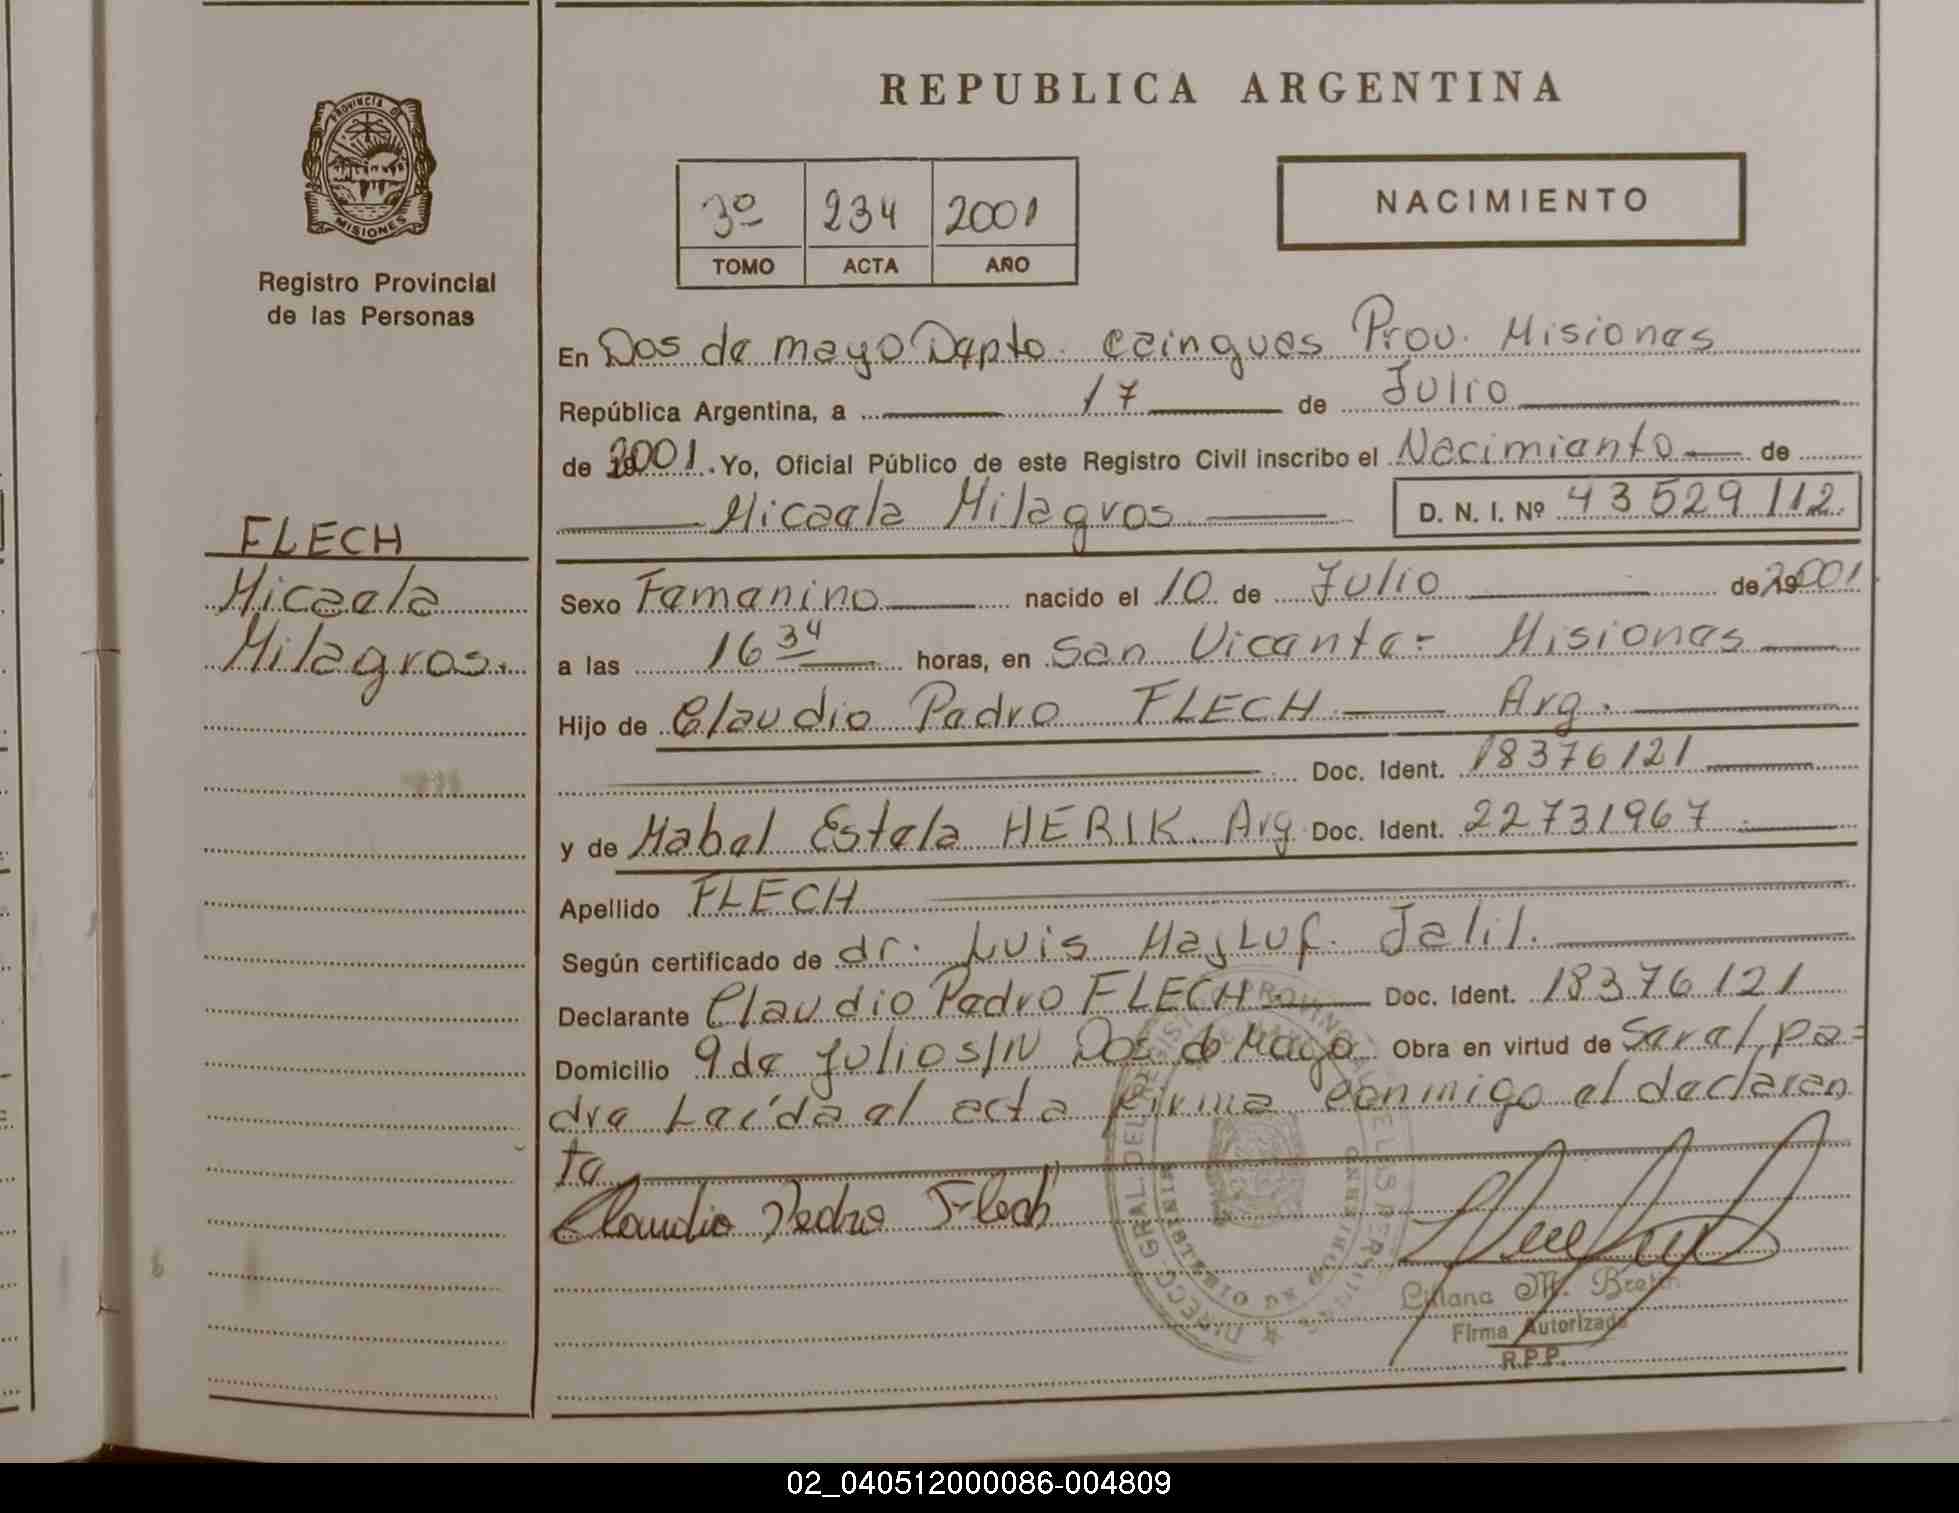 REPUBLICA ARGENTINA
PROVINCIA DE
MISIONES
Registro Provincial
de las Personas
3º 234 2001
TOMO ACTA AÑO
NACIMIENTO
En Dos de mayo Depto. Caingues Prov. Misiones
República Argentina, a 17 de Julio
de 2001. Yo, Oficial Público de este Registro Civil inscribo el Nacimiento de
Micaela Milagros D. N. I. Nº 43529112
FLECH
Micaela
Milagros.
Sexo Femanino nacido el 10 de Julio de 2001
a las 16 34 horas, en San Vicente= Misiones
Hijo de Claudio Pedro FLECH Arg.
Doc. Ident. 18376121
y de Mabel Estela HERIK. Arg. Doc. Ident. 22731967
Apellido FLECH
Según certificado de dr. Luis Jalil.
Declarante Claudio Pedro FLECH Doc. Ident. 18376121
Domicilio 9 de Julio S/N Dos de Mayo Obra en virtud de Ser el pa=
dre Leída el acta firma conmigo el declaran
te
Claudio Pedro Flech
DIRECC. GRAL. DEL REGISTRO PROVINCIAL DE LAS PERSONAS
MINISTERIO DE GOBIERNO
Liliana M.
Firma Autorizada
R.P.P.
02_040512000086-004809